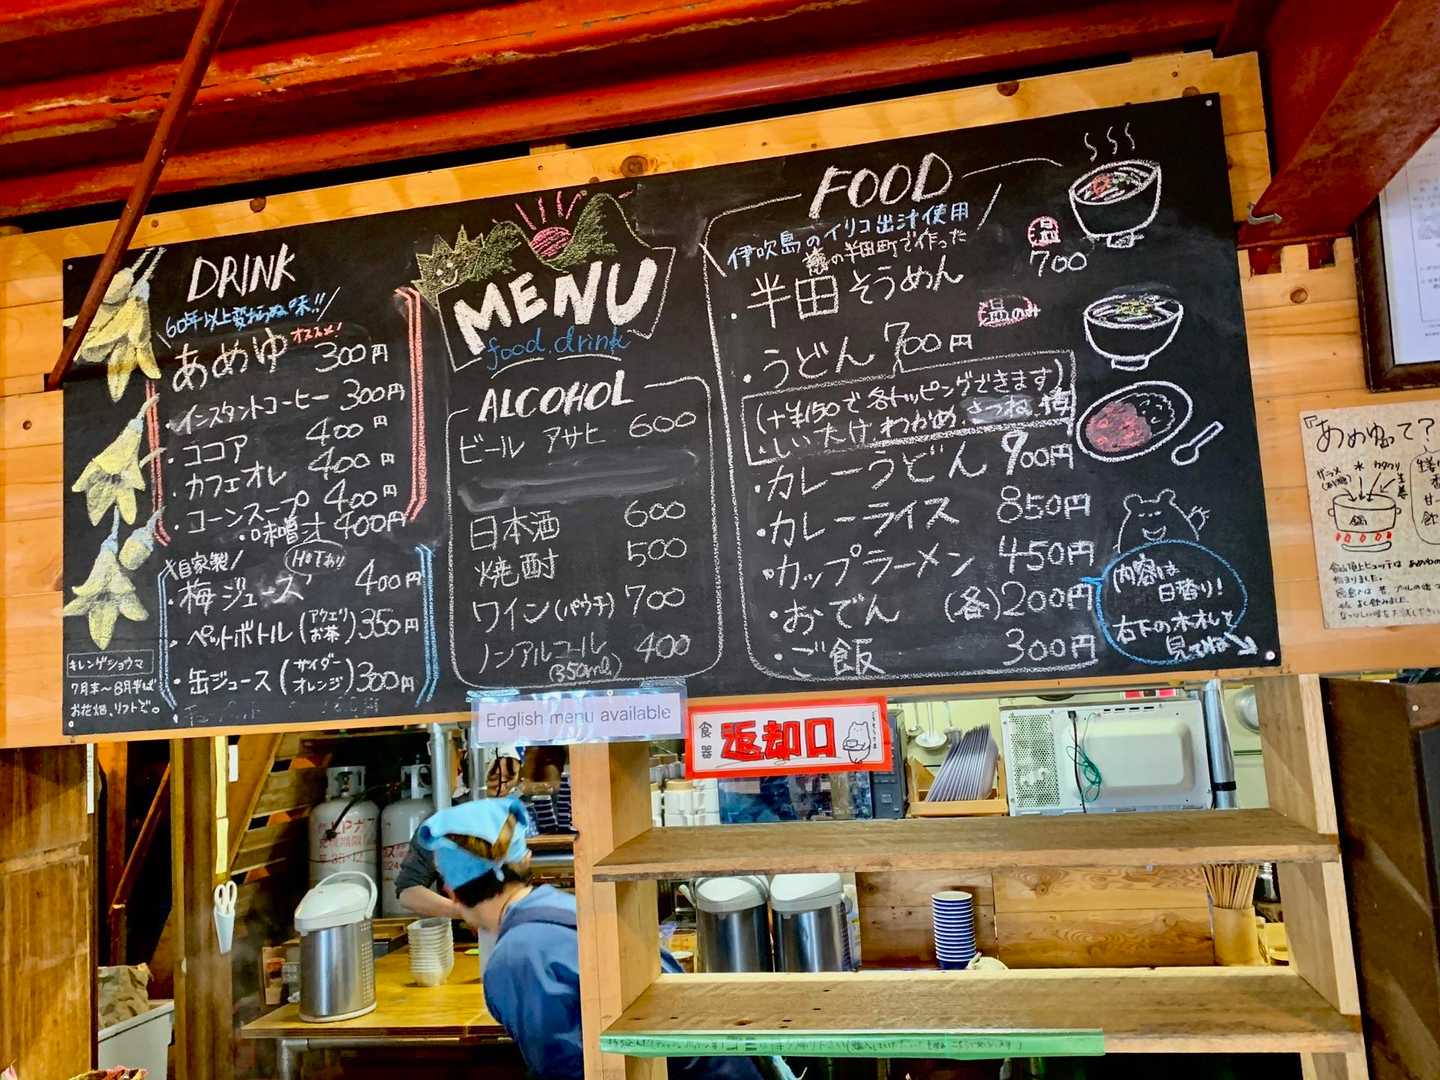 DRINK
60年以上変わらぬ味!!
オススメ!
あめゆ 300円
・インスタントコーヒー 300円
・ココア 400円
・カフェオレ 400円
・コーンスープ 400円
・味噌汁 400円
自家製
HOTあり
・梅ジュース 400円
・ペットボトル(アクエリ お茶)350円
・缶ジュース(サイダー オレンジ)300円
キレンゲショウマ
7月末〜8月半ば
お花畑、リフト
MENU
food.drink
ALCOHOL
ビール アサヒ 600
日本酒 600
焼酎 500
ワイン(パウチ) 700
ノンアルコール 400
(350ml)
FOOD
伊吹島のイリコ出汁使用
の半田町で作った
・半田そうめん
温
700
温のみ
・うどん 700円
(+¥150で各トッピングできます)
しいたけ、わかめ、きつね、梅
・カレーうどん 900円
・カレーライス 850円
・カップラーメン 450円
・おでん (各)200円
・ご飯 300円
内容は
日替り!
右下の木札を
見てね
English menu available
食器
返却口
『あめゆって?
鍋
LPガス